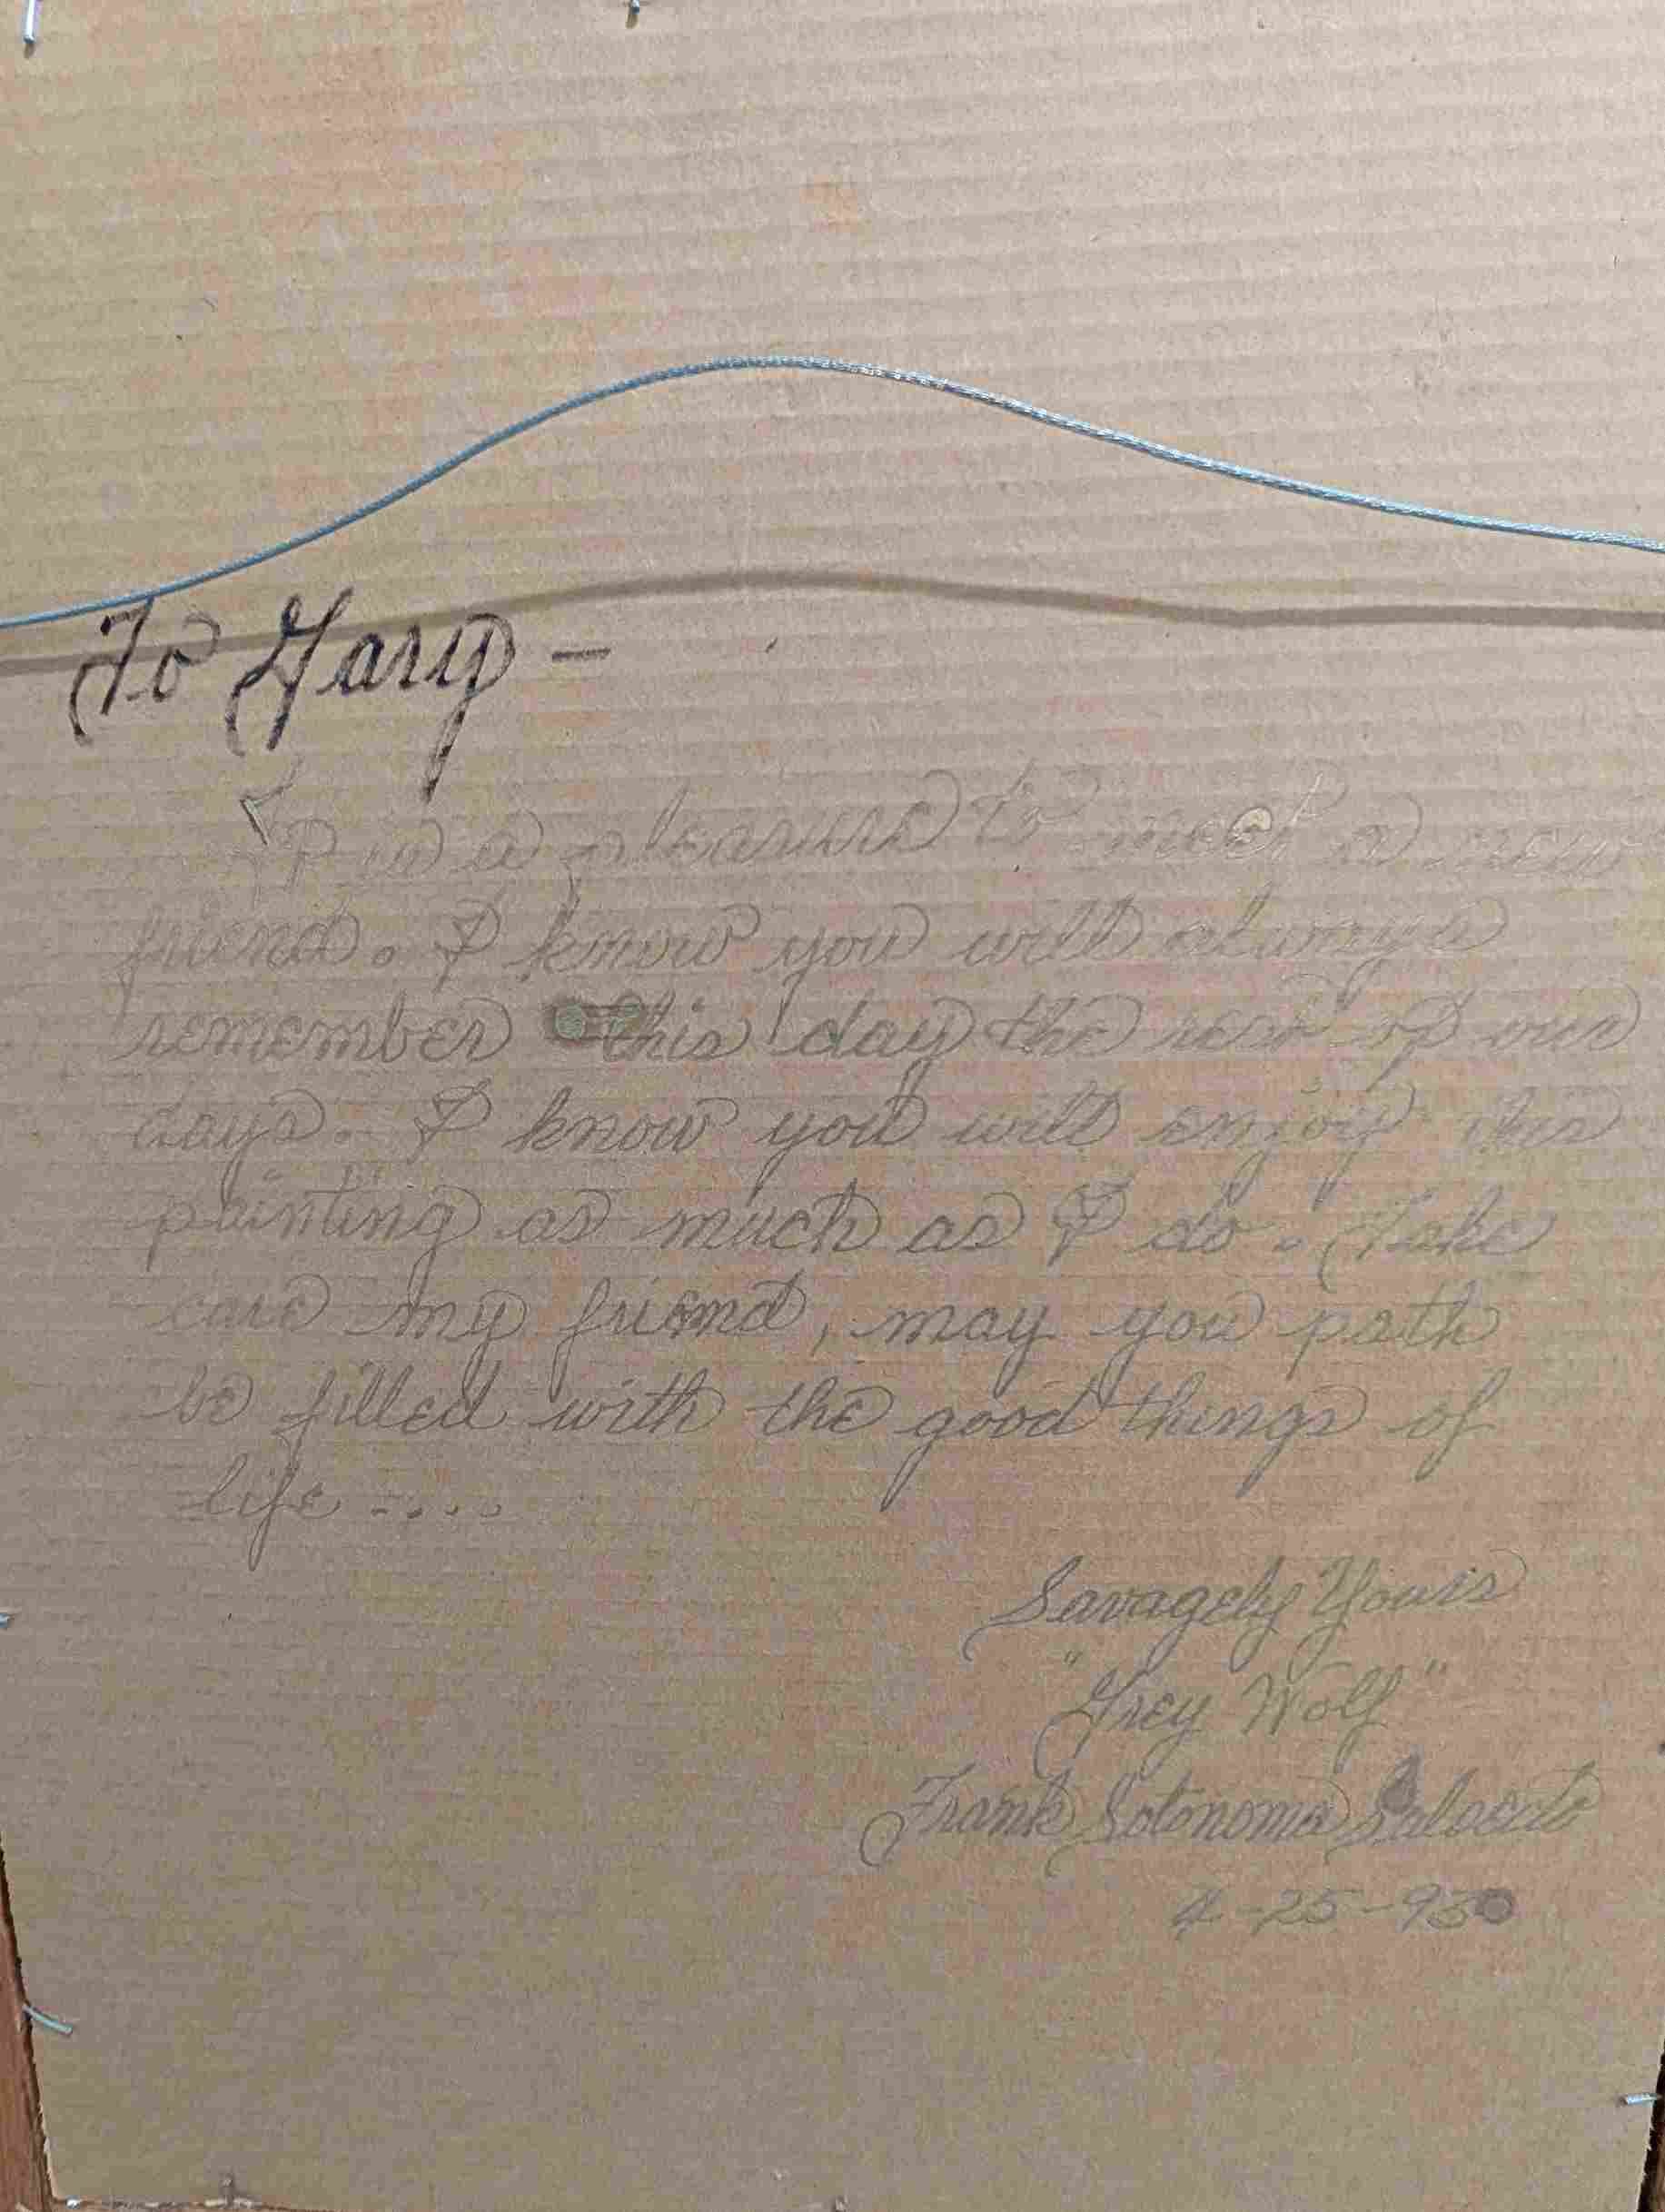 To Gary —
It is a pleasure to meet a new
friend. I know you will always
remember this day the rest of our
days. I know you will enjoy this
painting as much as I do. Take
care my friend, may you path
be filled with the good things of
life ....
Savagely Yours
"Grey Wolf"
Frank
4-25-93